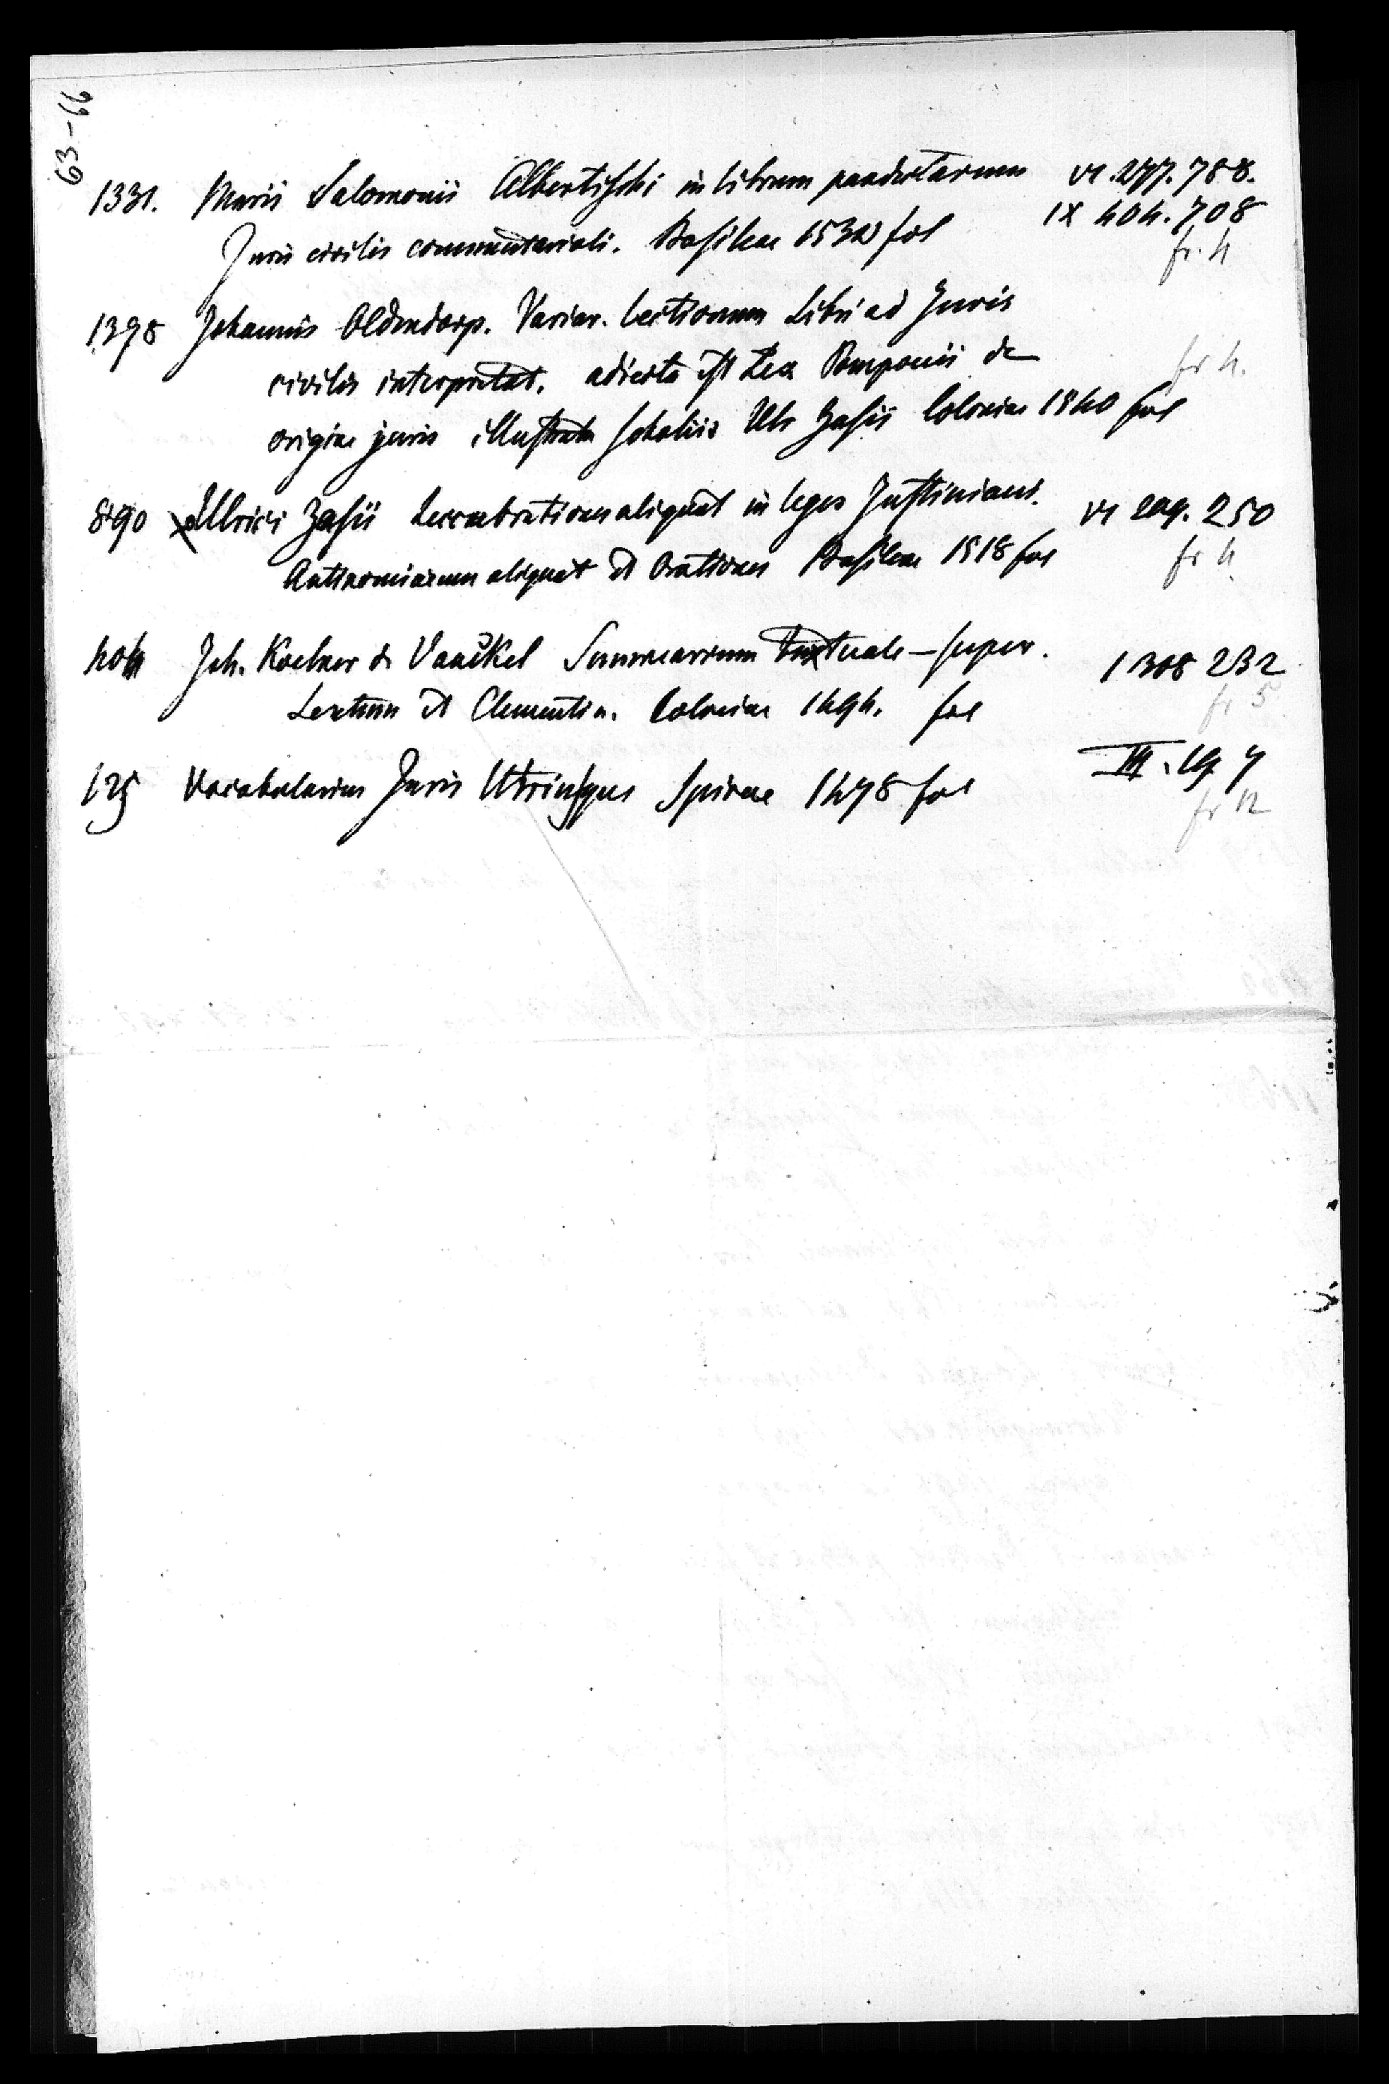 63-66
1331. Marii Salomonii Albertischi in librum pandectarum VI 277. 788.
Juris civilis commentarioli. Basileae 1530 fol IX 404. 708
fr. 4
1398 Johannis Oldendorp. Variar. lectionum Libri ad Juris
civilis interpretat. adiecta est Lex Pomponii de fr 4.
origine juris illustrata scholiis Ulr Zasii Coloniae 1540 fol
890 Ulrici Zasii Lucubrationes aliquot in leges Justiniani. VI 209. 250
Antinomiarum aliquot et Orationes Basileae 1518 fol fr 4
404 Joh. Koelner de Vanckel Summarium textuale - super. I 308 232
Sextum et Clementin. Coloniae 1494. fol fr 5
125 Vocabularius Juris Utriusque Spirae 1478 fol III. 197
fr 12